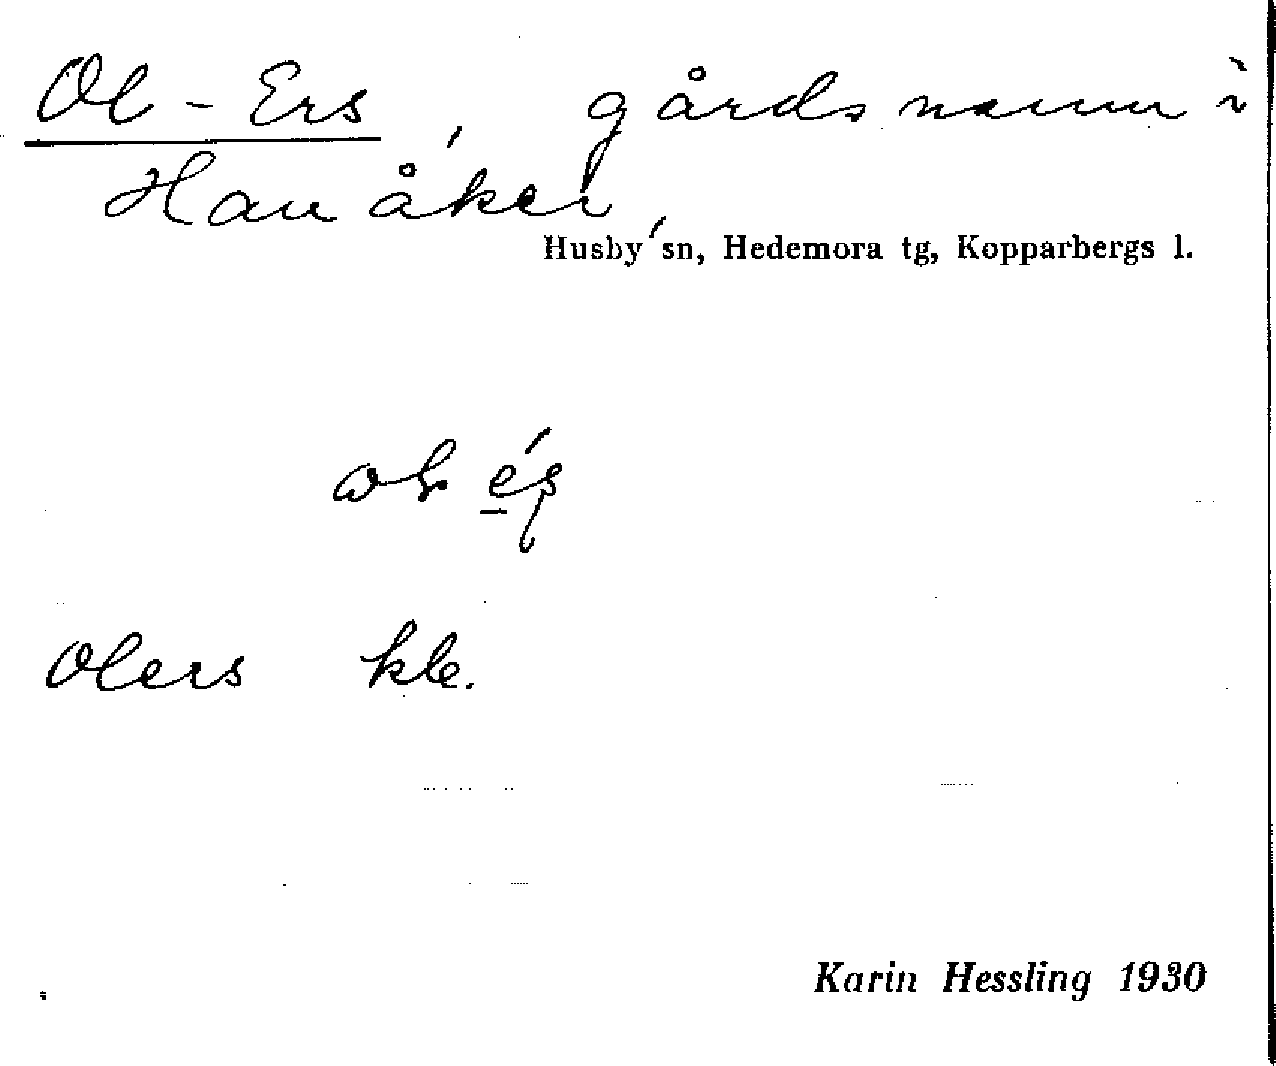 Ol-Ers, gårdsnamn i
Hanåker,
Husby sn, Hedemora tg, Kopparbergs l.
Olers kle.
Karin Hessling 1930